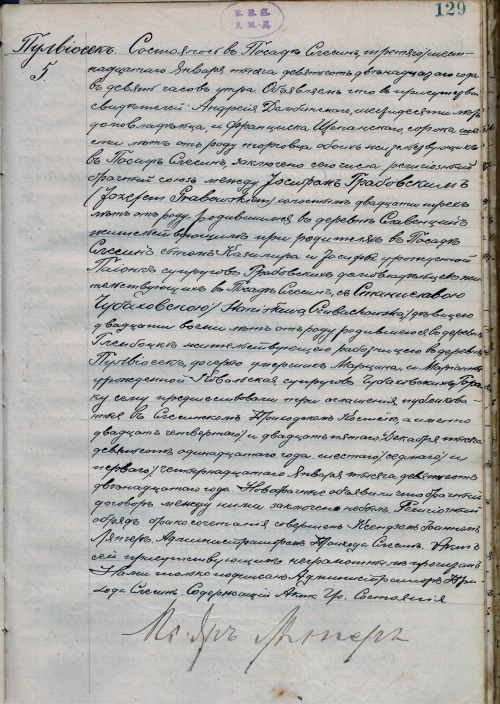 129
Пулвіосек.
5.
Состоялось въ Посадѣ Слесинъ, третьяго/шест-
надцатаго Января тысяча девятьсотъ двѣнадцатаго года
въ девять часовъ утра. Объявляемъ что въ присутствіи
свидѣтелей: Андрея шестидесяти лѣтъ
домовладѣльца, и Франциска сорока
лѣтъ отъ роду торговца обоихъ жительствующихъ
въ Посадѣ Слесинъ, заключенъ сего числа религіозный
брачный союзъ между Іосифомъ Грабовскимъ
/Józefem Grabowskim/ холостымъ двадцати трехъ
лѣтъ отъ роду, родившимся въ деревнѣ
жительствующимъ при родителяхъ въ Посадѣ
Слесинъ сыномъ Казимира и Іосифы урожденной
супруговъ Грабовскихъ домовладѣльцевъ жи-
тельствующихъ въ Посадѣ Слесинъ, съ Станиславою
/Stanisławą дѣвицею
двадцати восьми лѣтъ отъ роду, родившеюся въ деревнѣ
Глембоцкъ жительствующею работницею въ деревнѣ
Пулвіосекъ, дочерью умершихъ Марцина, и Маріанны
урожденной супруговъ Бра-
ку сему предшествовали три оглашенія публикован-
ныя въ Слесинскомъ Приходскомъ Костелѣ, а именно
двадцать четвертаго/ и двадцать пятаго Декабря тысяча
девятьсотъ одинадцатаго года шестаго/ седьмаго/ и
перваго/ четырнадцатаго Января тысяча девятьсотъ
двѣнадцатаго года. Новобрачные объявили что брачный
договоръ между ними заключенъ небылъ. Религіозный
обрядъ бракосочетанія совершенъ Ксендзомъ
Администраторомъ Прихода Слесинъ. Актъ
сей присутствующимъ неграмотнымъ прочитанъ
Нами только подписанъ Администраторъ При-
хода Слесинъ Содержащій Акты Гр. Состоянія